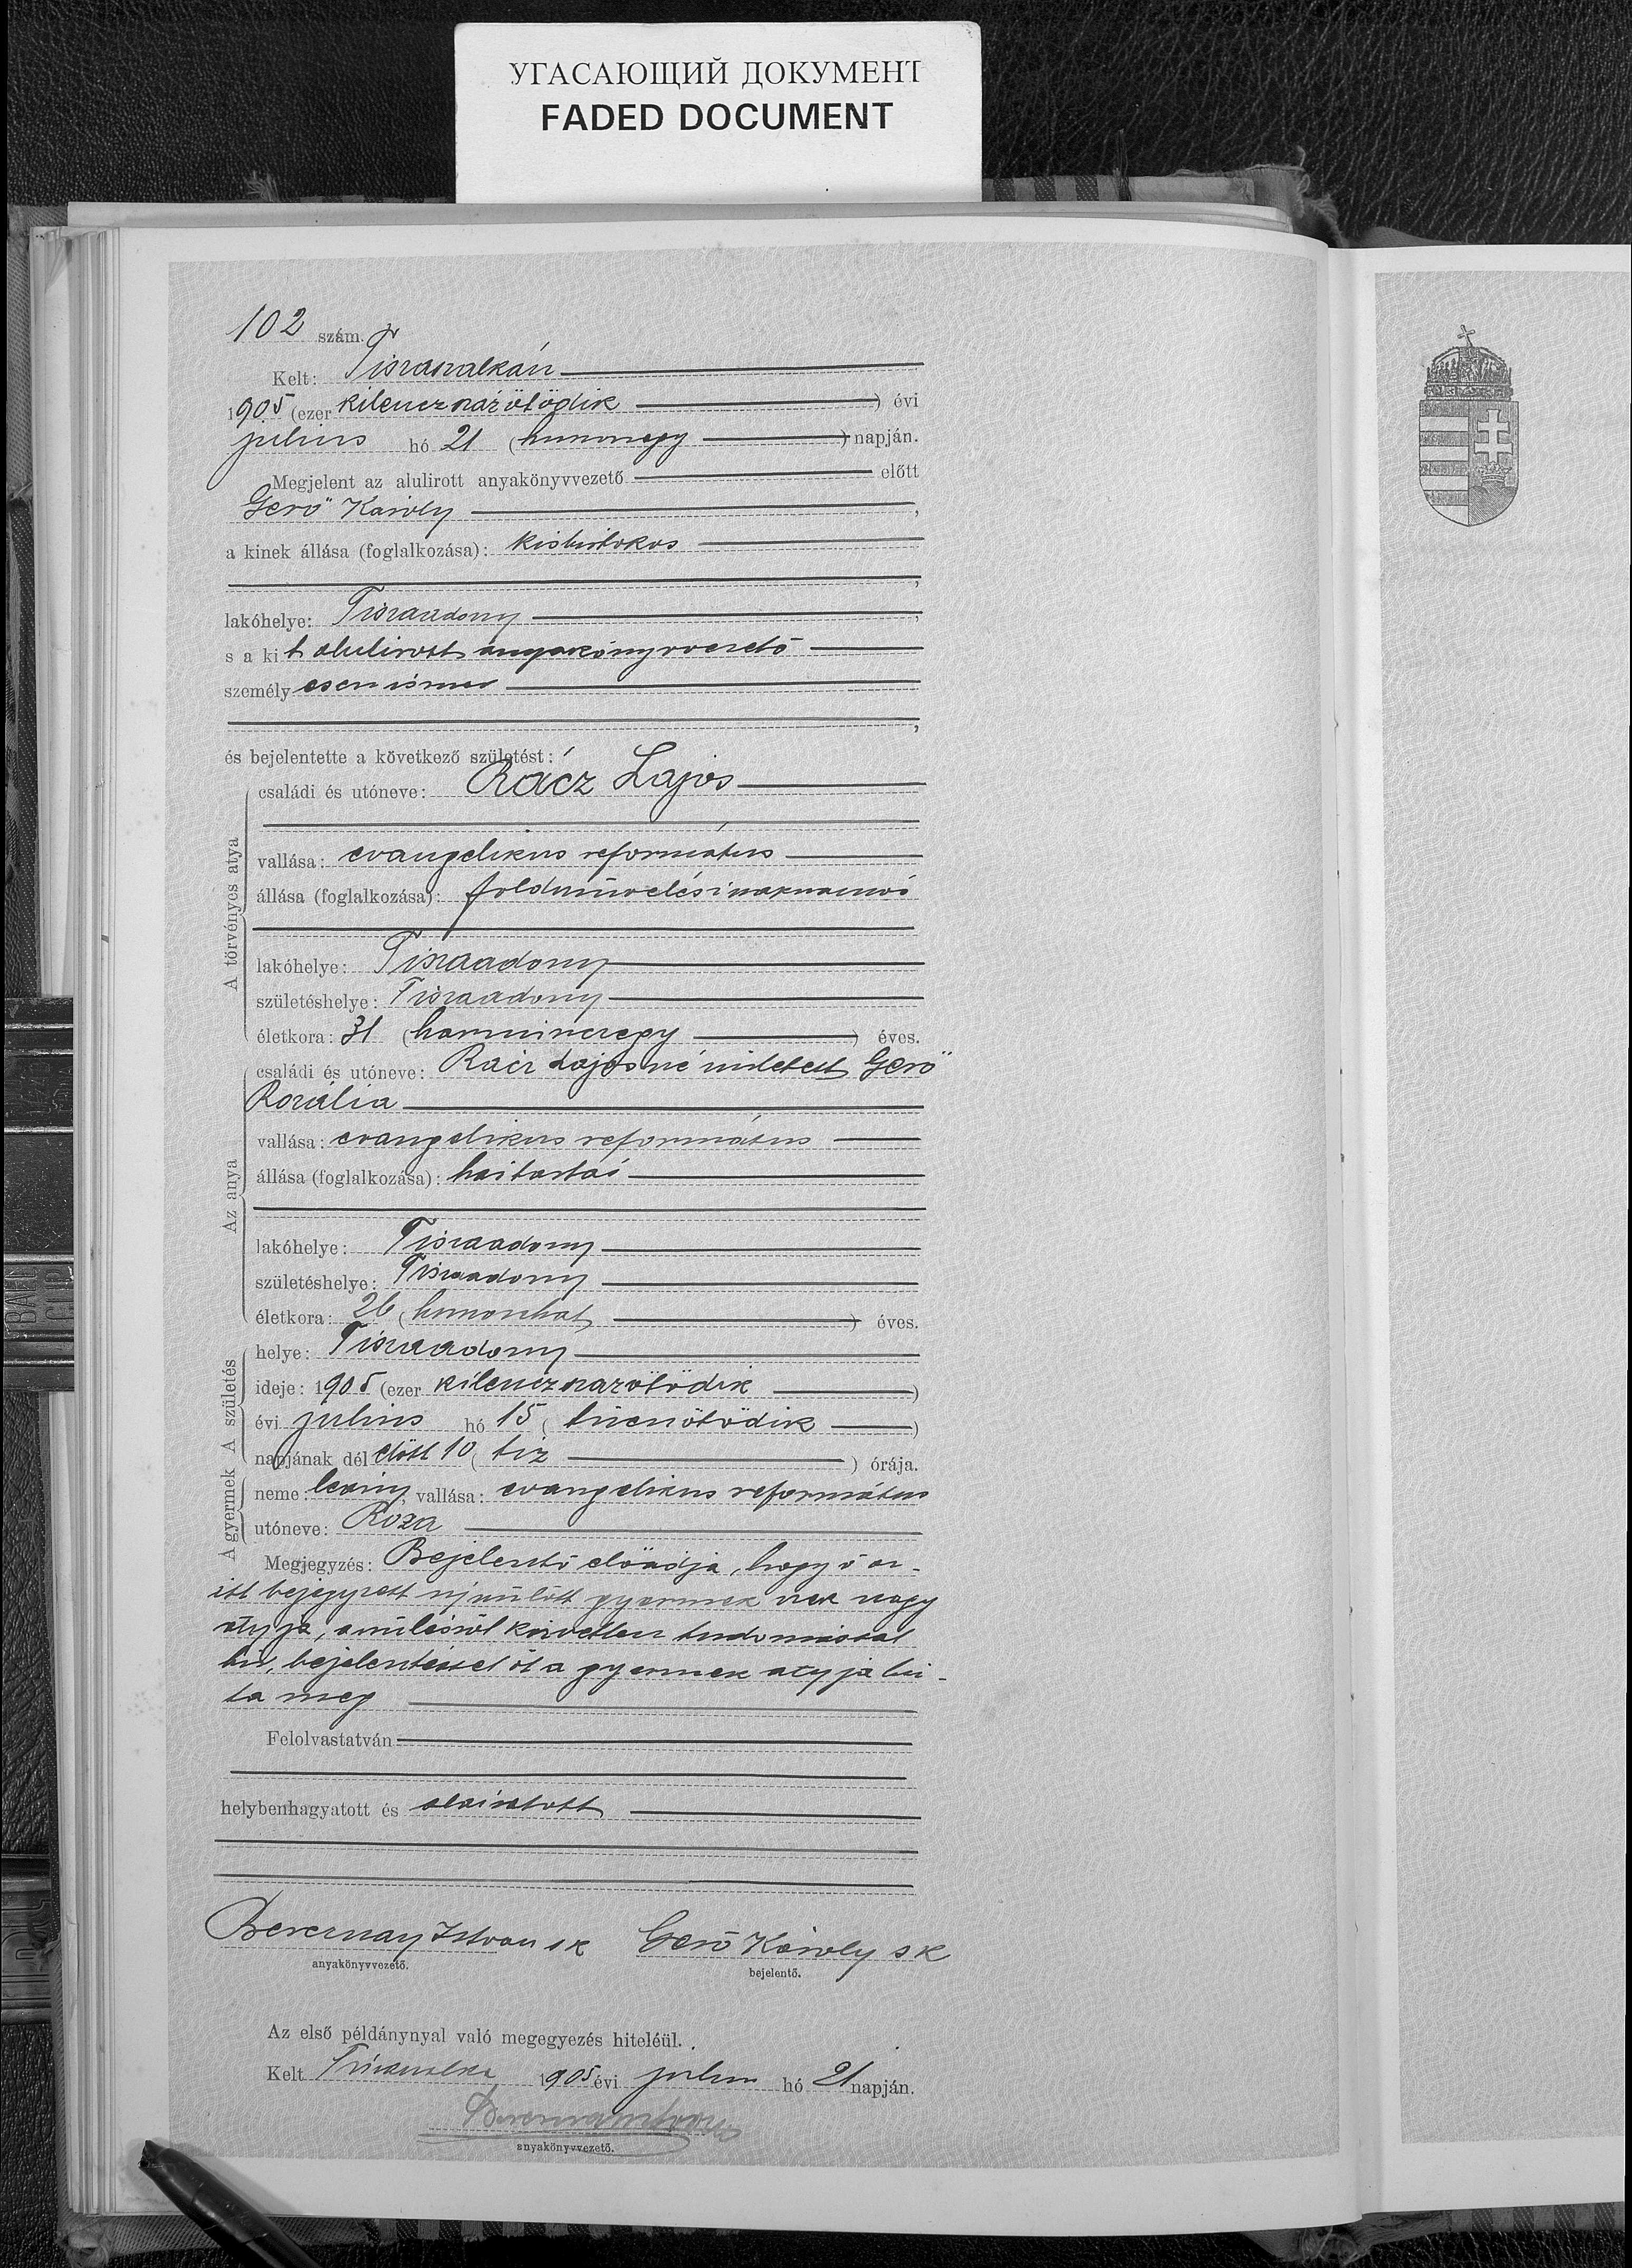 УГАСАЮЩИЙ ДОКУМЕНТ
FADED DOCUMENT
102 szám.
Kelt: Tiszaszalkán
1905 (ezer kilenczszázötödik ) évi
julius hó 21 (huszonegy ) napján.
Megjelent az alulirott anyakönyvvezető előtt
Gerő Károly ,
a kinek állása (foglalkozása): kisbirtokos
,
lakóhelye: Tiszaadony ,
s a kit alulirott anyakönyvvezető
személyesen ismer
,
és bejelentette a következő születést:
A törvényes atya
családi és utóneve: Rácz Lajos
vallása: evangelikus református
állása (foglalkozása): földművelési napszámos
lakóhelye: Tiszaadony
születéshelye: Tiszaadony
életkora: 31 (harminczegy ) éves.
Az anya
családi és utóneve: Rácz Lajosné született Gerő
Rozália
vallása: evangelikus református
állása (foglalkozása): háztartás
lakóhelye: Tiszaadony
születéshelye: Tiszaadony
életkora: 26 (huszonhat ) éves.
A születés
helye: Tiszaadony
ideje: 1905 (ezer kilenczszázötödik )
évi julius hó 15 (tizenötödik )
napjának dél előtt 10 (tiz ) órája.
A gyermek
neme: leány, vallása: evangelikus református
utóneve: Róza
Megjegyzés: Bejelentő előadja, hogy ő az
itt bejegyzett ujszülött gyermeknek nagy
atyja, a szülésről közvetlen tudomással
bir, bejelentéssel őt a gyermek atyja biz-
ta meg
Felolvastatván
helybenhagyatott és aláiratott
István s k Gerő Károly s k
anyakönyvvezető. bejelentő.
Az első példánynyal való megegyezés hiteléül.
Kelt Tiszaszalka 1905 évi julius hó 21 napján.
anyakönyvvezető.